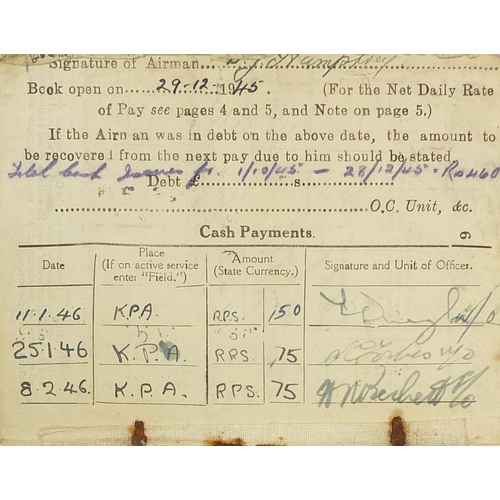 Signature of Airman
Book open on 29-12-1945. (For the Net Daily Rate
of Pay see pages 4 and 5, and Note on page 5.)
If the Airman was in debt on the above date, the amount to
be recovered from the next pay due to him should be stated
Total cash Issues fr. 1/10/45 – 28/12/45 - Rs 460
Debt £ s
O.C. Unit, &c.
Cash Payments.
9
Date Place (If on active service enter "Field.") Amount (State Currency.) Signature and Unit of Officer.
11.1.46 K.P.A. R.P.S. 150
25.1.46 K.P.A. R.P.S. 75
8.2.46. K.P.A. R.P.S. 75